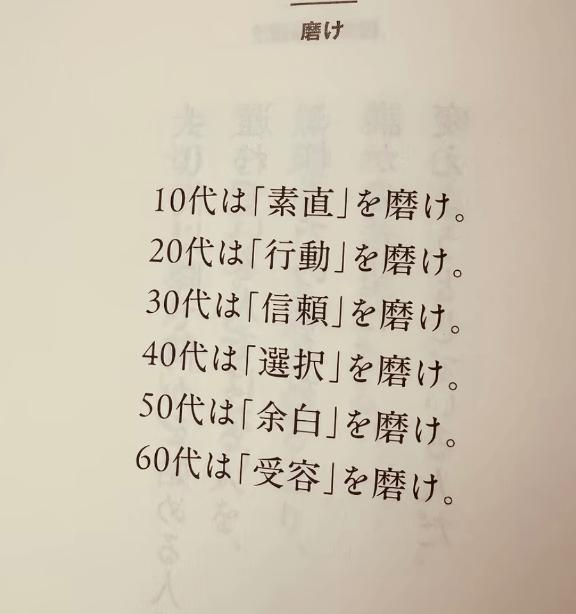 磨け
10代は「素直」を磨け。
20代は「行動」を磨け。
30代は「信頼」を磨け。
40代は「選択」を磨け。
50代は「余白」を磨け。
60代は「受容」を磨け。